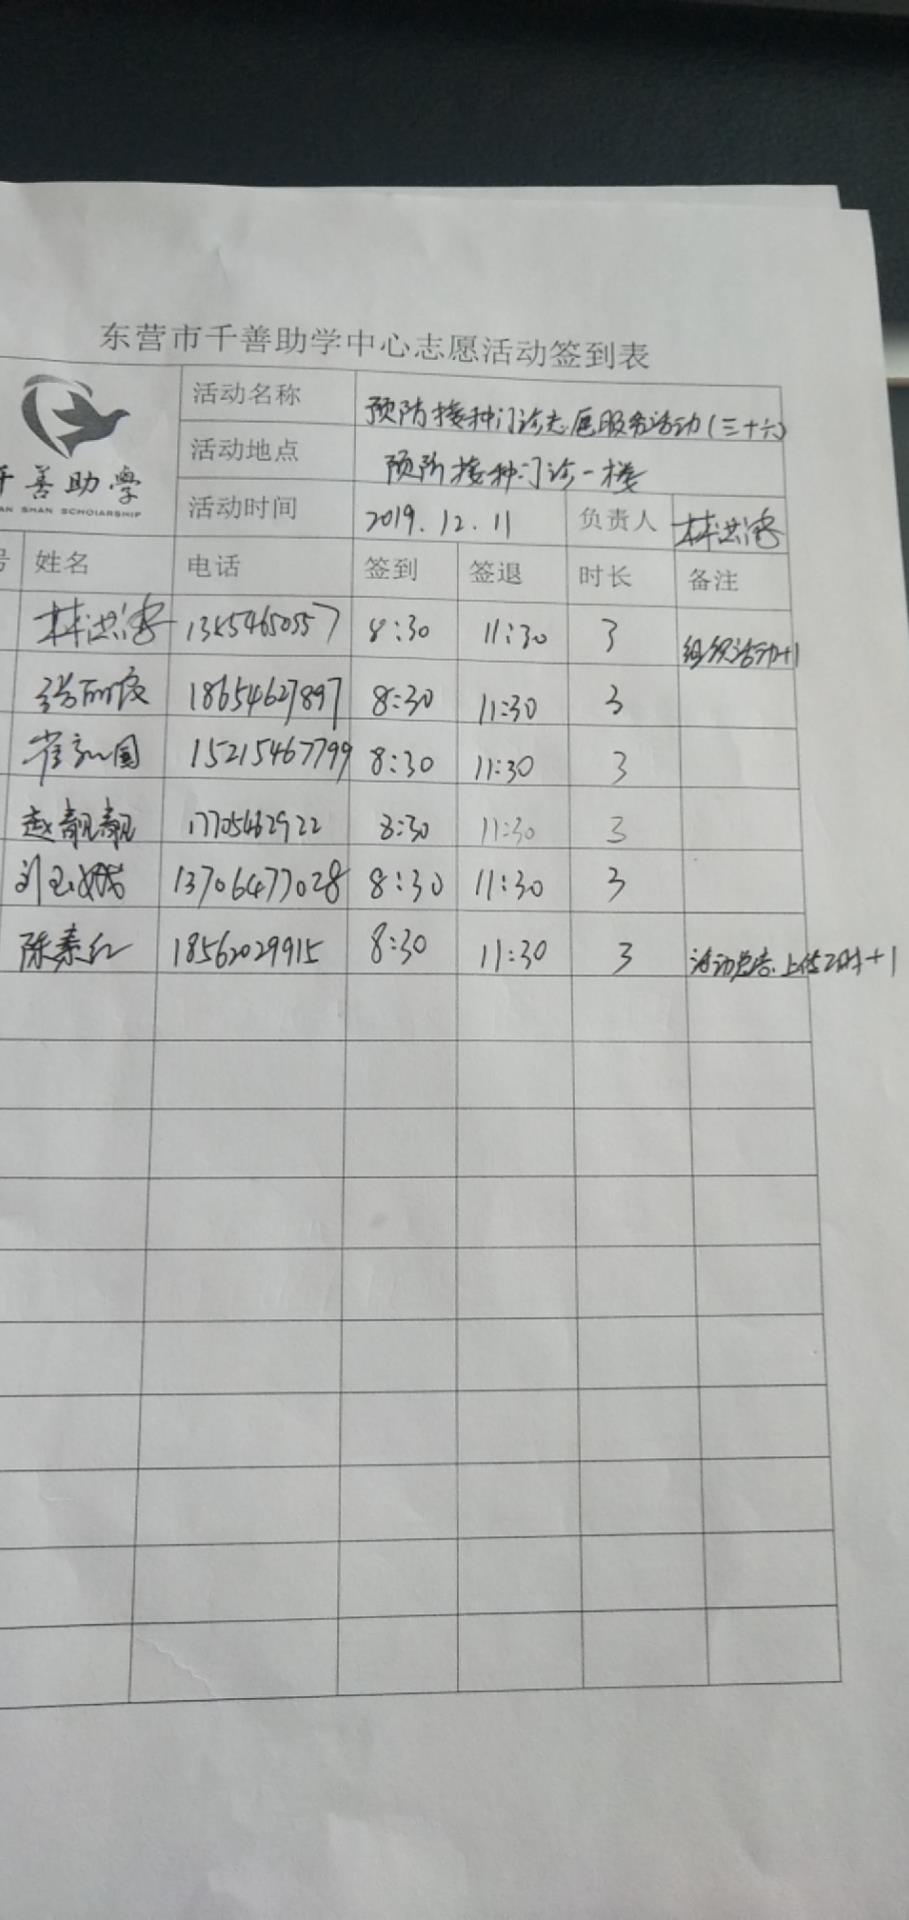 东营市千善助学中心志愿活动签到表
千善助学
AN SHAN SCHOLARSHIP
活动名称 预防接种门诊志愿服务活动(三十六)
活动地点 预防接种门诊一楼
活动时间 2019.12.11 负责人 林洪
号 姓名 电话 签到 签退 时长 备注
林洪 13454650557 8:30 11:30 3 组织活动+1
张 18654627897 8:30 11:30 3
崔 国 15215467799 8:30 11:30 3
赵靓靓 17705462922 8:30 11:30 3
刘玉娥 13706477028 8:30 11:30 3
陈素红 18562029915 8:30 11:30 3 活动总结.上传2时+1